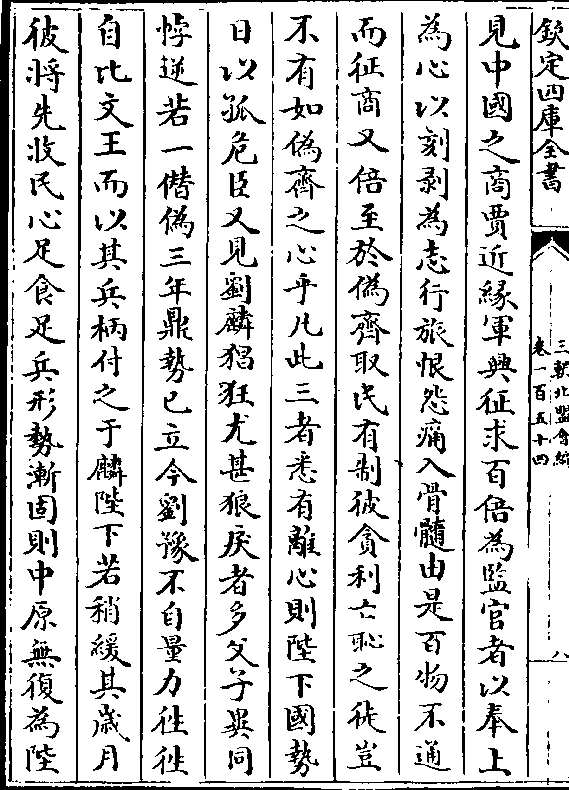 欽定四庫全書
三朝北盟會編
卷一百五十四
八
見中國之商賈近縁軍興征求百倍為監官者以奉上
為心以刻剥為志行旅恨怨痛入骨髓由是百物不通
而征商又倍至於偽齊取民有制彼貪利亡恥之徒豈
不有如偽齊之心乎凡此三者悉有離心則陛下國勢
日以孤危臣又見劉麟猖狂尤甚狼戾者多父子異同
悖逆若一僣偽三年鼎勢已立今劉豫不自量力徃徃
自比文王而以其兵柄付之于麟陛下若稍緩其歲月
彼將先收民心足食足兵形勢漸固則中原無復為陛